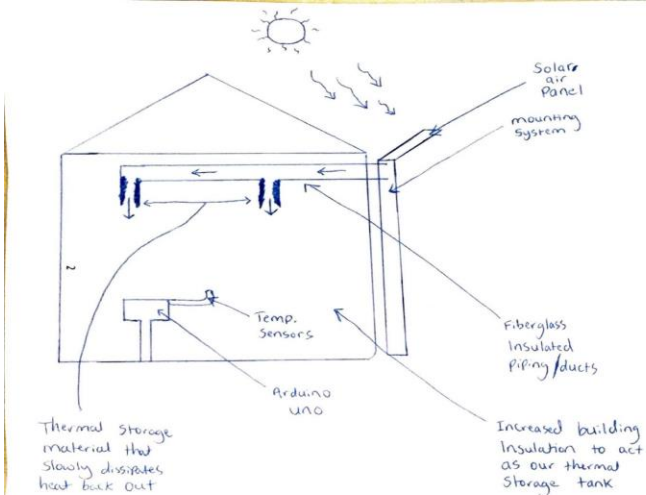 Solar
air
Panel
mounting
System
2
Temp.
Sensors
Arduino
uno
Fiberglass
Insulated
Piping/ducts
Thermal Storage
material that
Slowly dissipates
heat back out
Increased building
Insulation to act
as our thermal
Storage tank